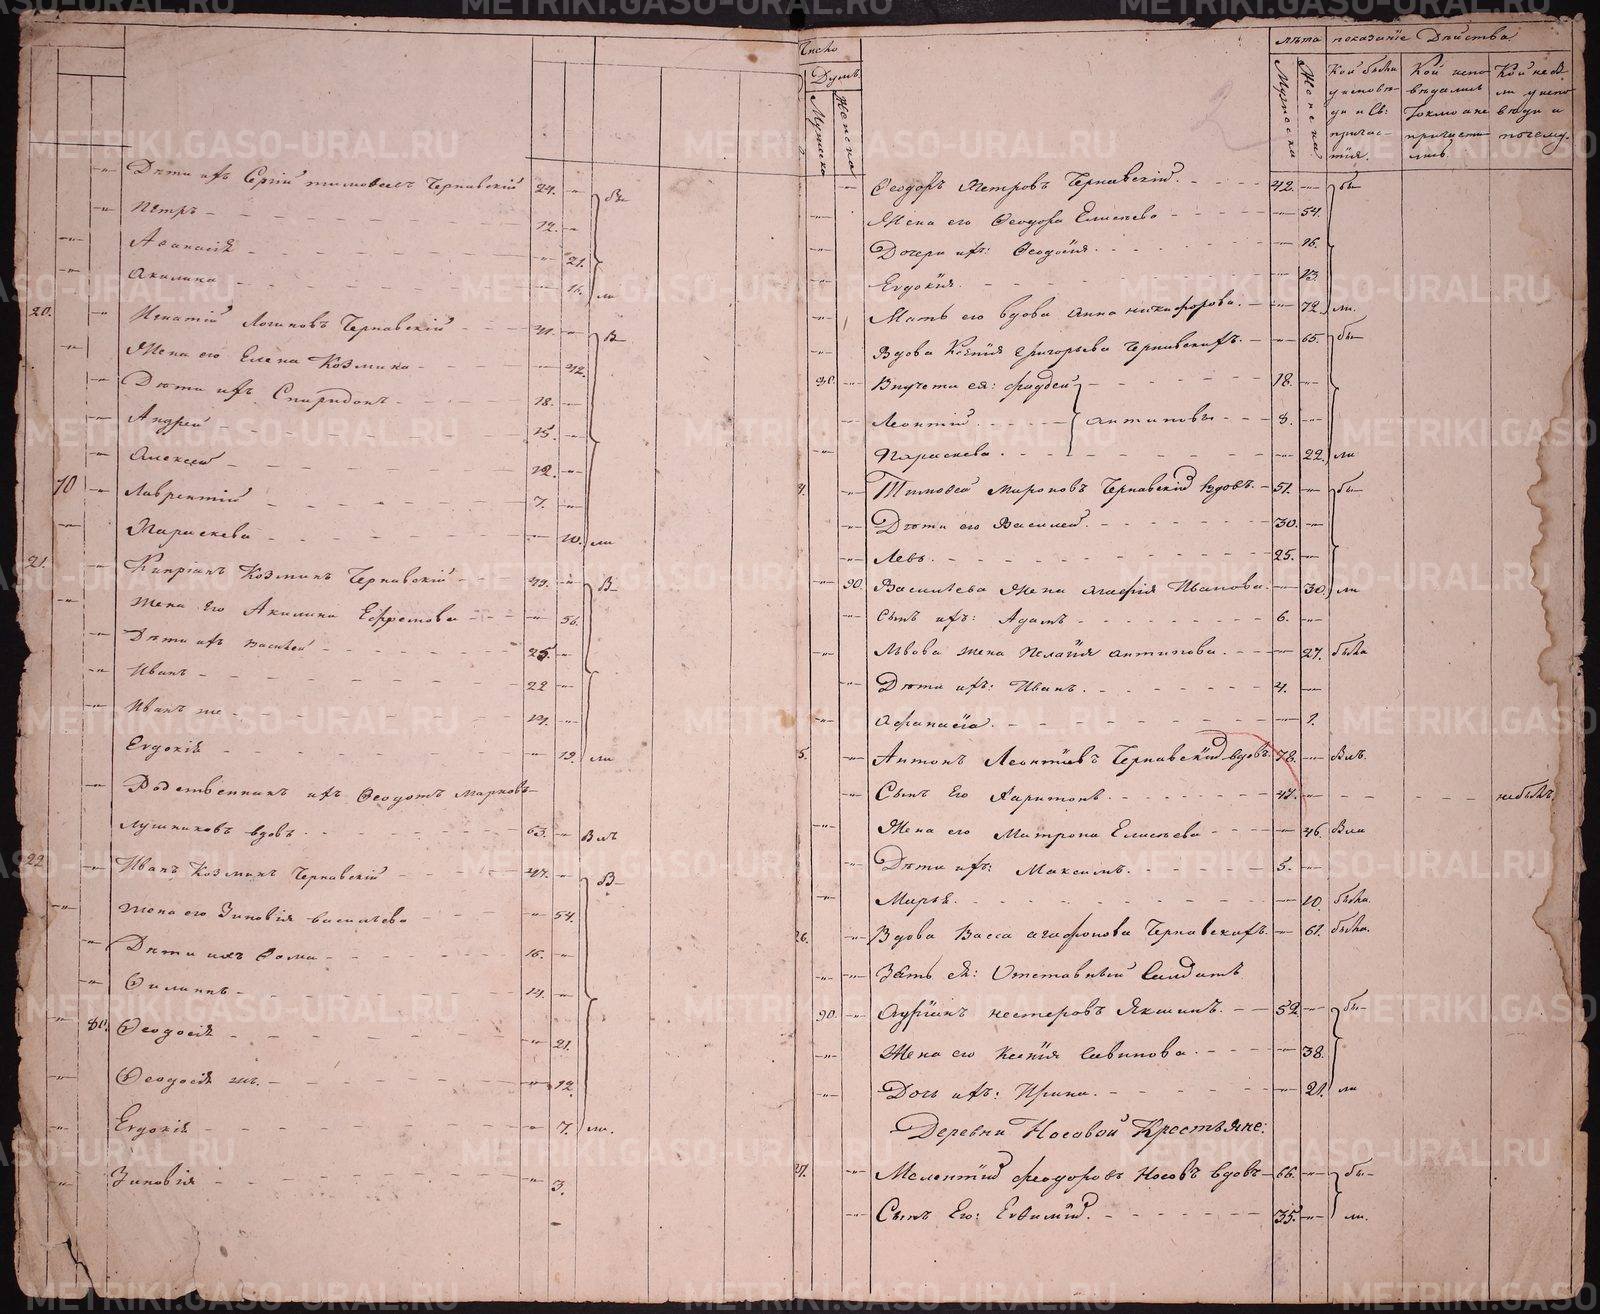 Дѣти ихъ Сергій тимовеевъ Чернавскій 24. бы
Пётръ 12.
Аѳанасія 21.
Акилина 16. ли
20. Игнатій Логиновъ Чернавскій 41. В
Жена его Елена Козмина 42.
Дѣти ихъ Спиридонъ 18.
Андрей 15.
Алексей 12.
70 Лаврентій 7.
Параскева 10. ли
21. Кипріанъ Козминъ Чернавскій 49. В
Жена Его Акилина Ефремова 56.
Дѣти ихъ Василей 25.
Иванъ 22
Иванъ же 14.
Евдокія 19. ли
Родственникъ ихъ Ѳеодотъ Марковъ
лушниковъ вдовъ 63. Былъ
22 Иванъ Козминъ Чернавскій 47. В
Жена его Зиновія васильева 54.
Дѣти ихъ Ѳома 16.
Филипъ 14.
80. Ѳеодосія 21.
Ѳеодосія же. 12.
Евдокія 7. ли.
Зиновія 3.
Число Душъ Мужеска Женска
лѣта Мужеска Женска
показаніе Дѣйства
Кои были у исповѣди и Св: причастія.
Кои исповѣдались токмо а не причастились.
Кои не были у исповѣди и почему.
2
Ѳеодоръ Петровъ Чернавскій. 42. бы
Жена его Ѳеодора Елисѣева 54.
Дочери ихъ: Ѳеодосія. 16.
Евдокія. 13.
Мать его вдова Анна никифорова. 72. ли.
Вдова Ксенія григорьева Чернавскихъ. 65. бы
Внучета ея: фаддей 18.
Леонтій антиповы 8.
Параскева. 22. ли
4. Тимовей мироновъ Чернавскій вдовъ. 51. бы
Дѣти его Василей. 30.
Левъ. 25.
90. Васильева жена агафія Иванова. 30. ли
Сынъ ихъ: Адамъ 6.
Львова жена Пелагія антипова. 27. была
Дѣти ихъ: Иванъ. 4.
Афанасія.
5. Антонъ Леонтіевъ Чернавскій вдовъ. 78. Былъ.
Сынъ Его Харитонъ. 47. небылъ
Жена его Матрона Елисѣева 46. Была
Дѣти ихъ: Максимъ. 5.
Марья. 10. была.
26. Вдова Васса агафонова Чернавскихъ. 61. была.
Зять ея: Отставный Салдатъ
90. нестеровъ Якшинъ. 52 бы
Жена его Ксенія Савинова. 38.
Дочь ихъ: Ирина. 21. ли
Деревни Носовой Крестьяне:
27. Мелентій феодоровъ Носовъ вдовъ 66. бы
Сынъ Его: Евѳимій. 35. ли.
METRIKI.GASO-URAL.RU